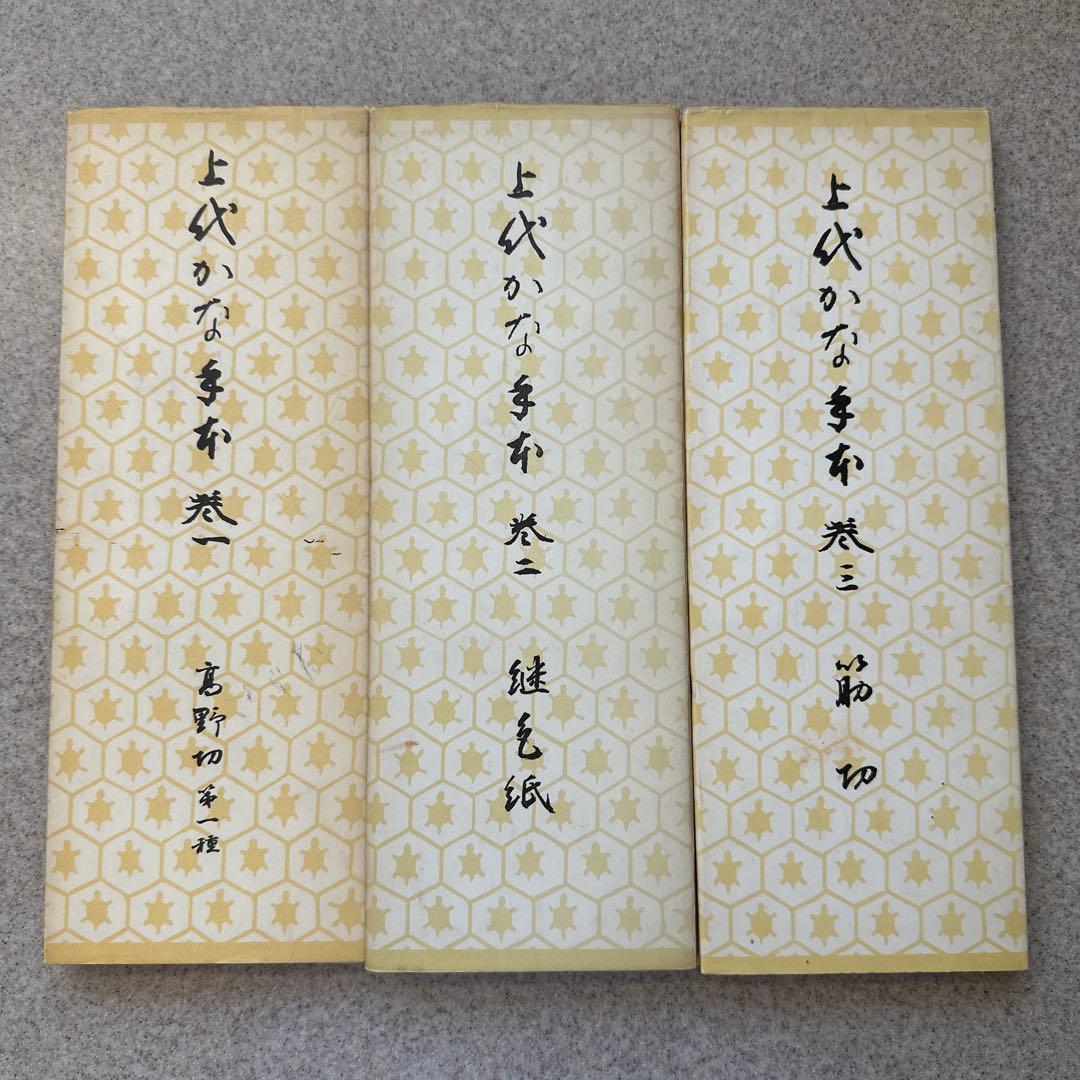 上代かな手本 巻一
高野切 第一種
上代かな手本 巻二
継色紙
上代かな手本 巻三
筋切